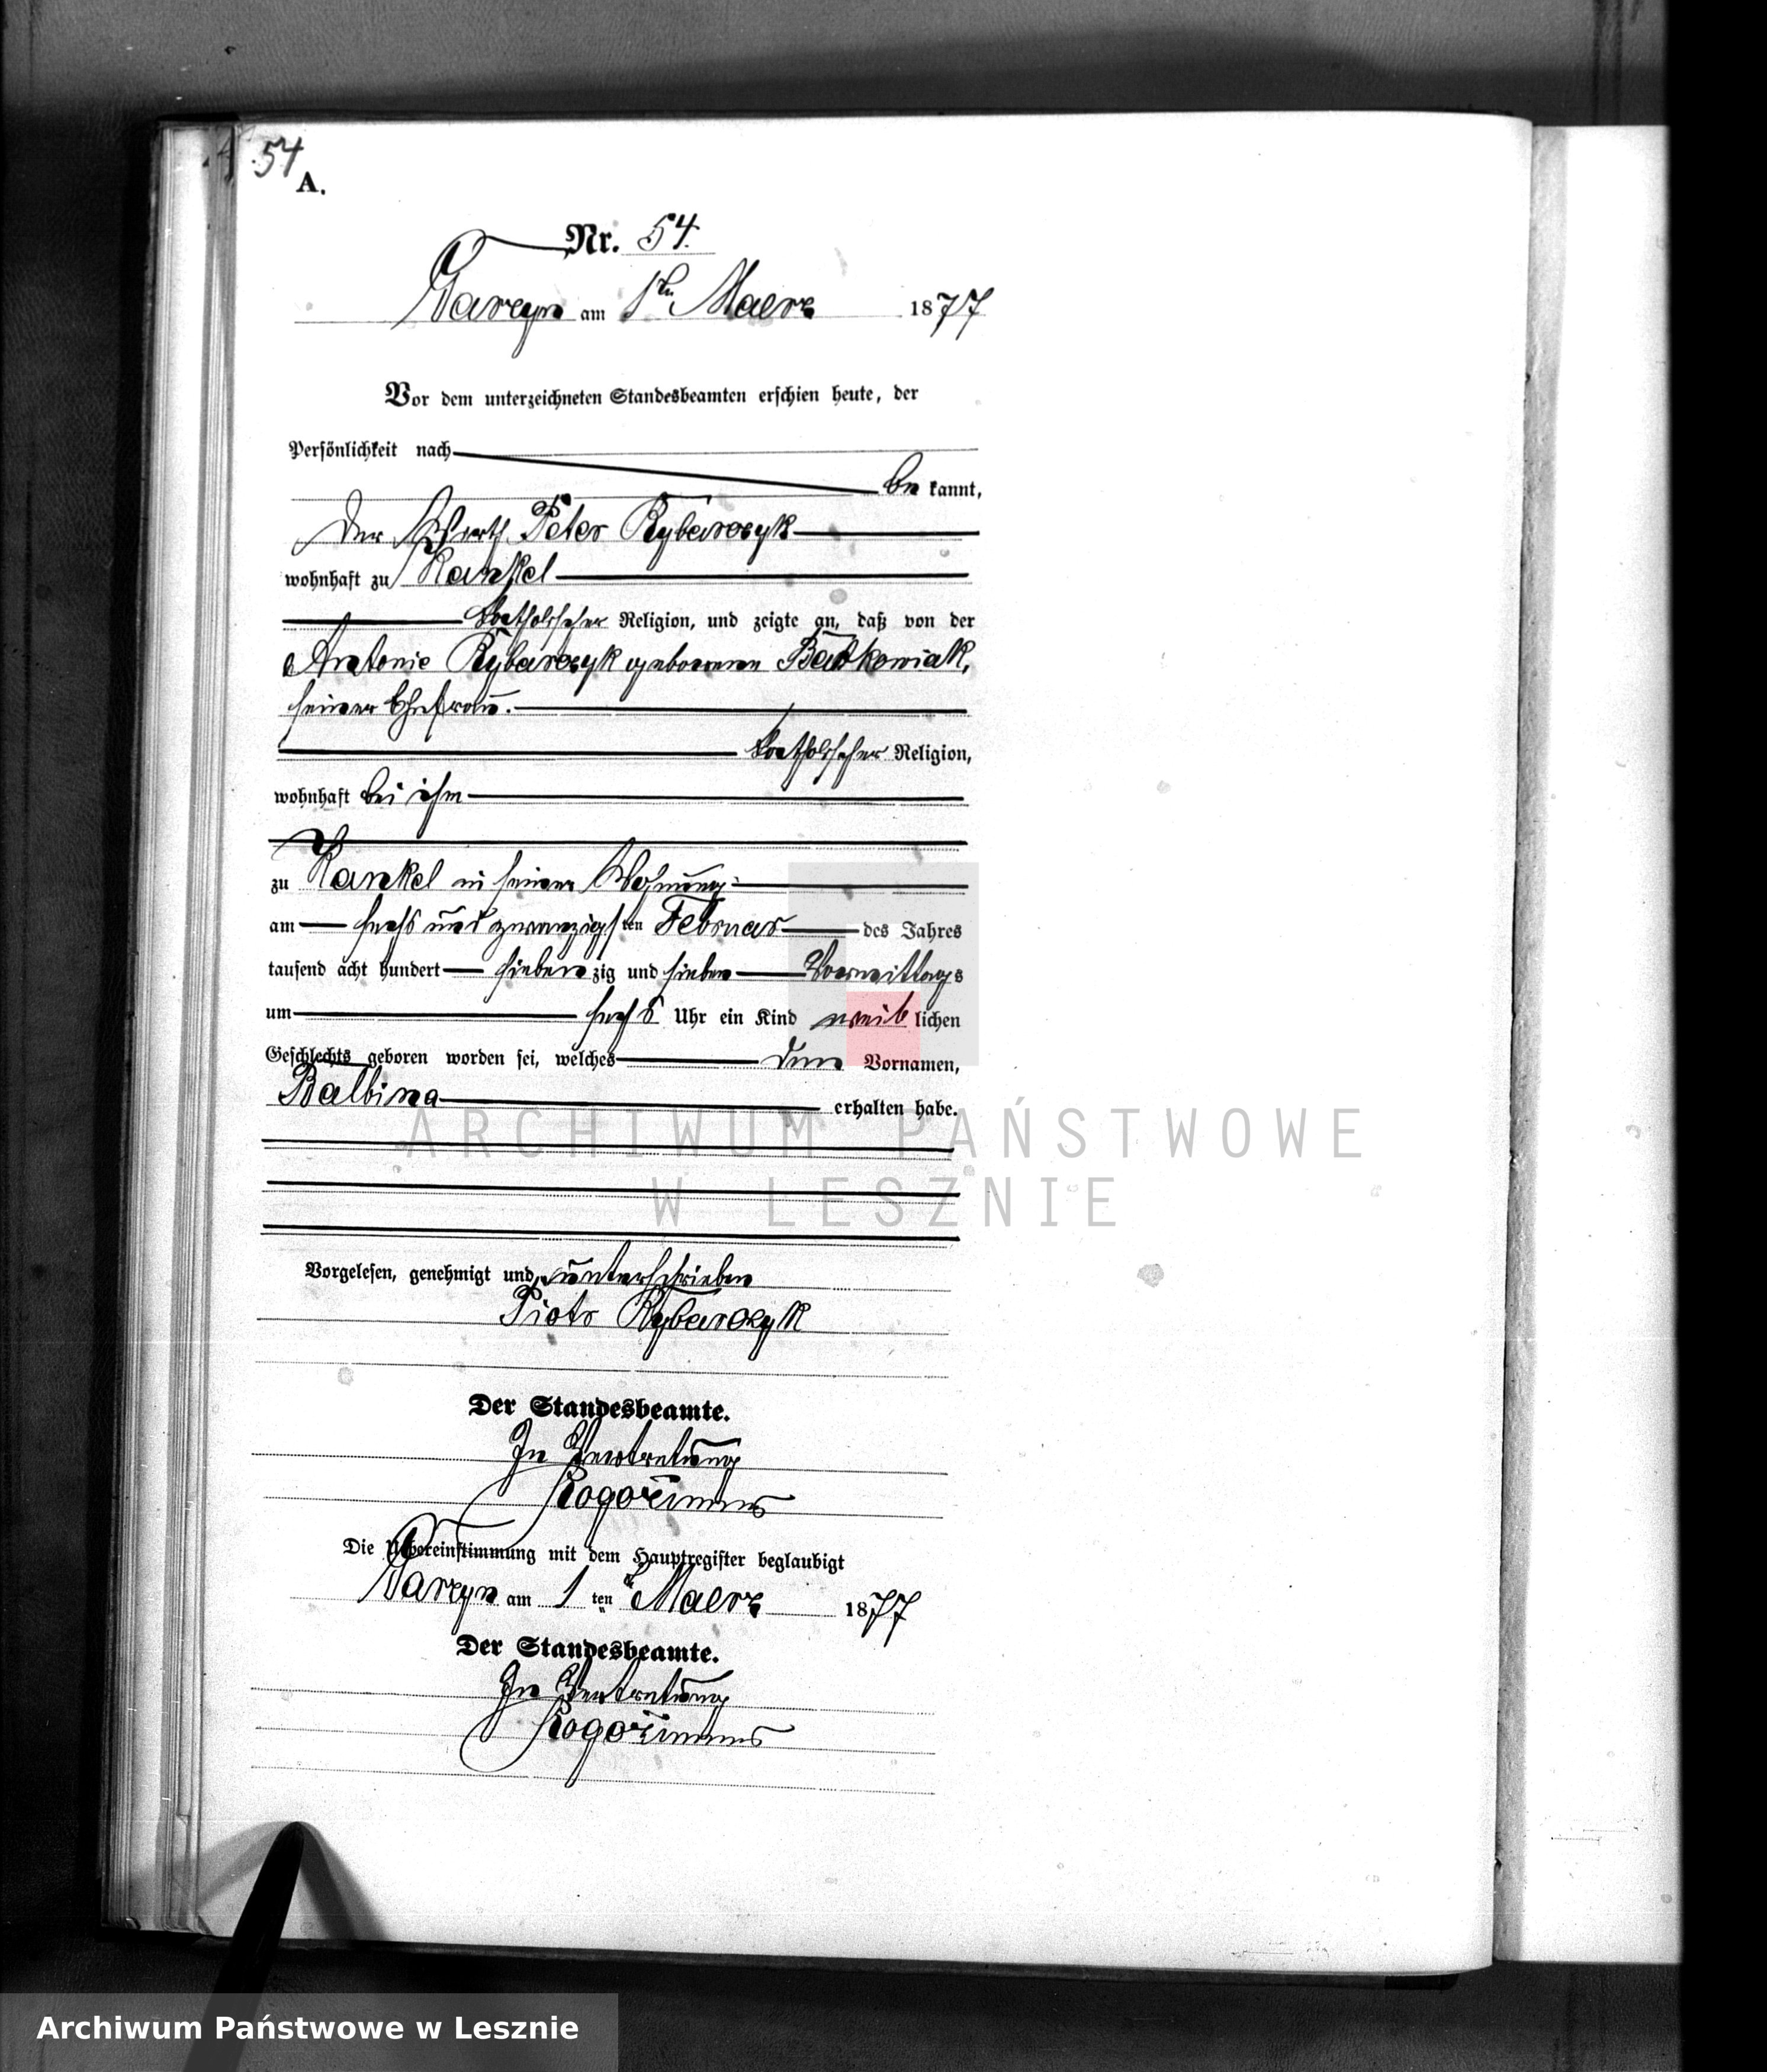 54
A.
Nr. 54.
Garzyn am 1ten Maerz 1877
Vor dem unterzeichneten Standesbeamten erschien heute, der
Persönlichkeit nach
be kannt,
der Wirth Peter Rybarczyk
wohnhaft zu Kankel
katholischer Religion, und zeigte an, daß von der
Antonie Rybarczyk geborenen
seiner Ehefrau.
katholischer Religion,
wohnhaft bei ihm
zu Kankel in seiner Wohnung
am sechs und zwanzigsten Februar des Jahres
tausend acht hundert sieben zig und sieben Vormittags
um sechs Uhr ein Kind weib lichen
Geschlechts geboren worden sei, welches den Vornamen,
Balbina erhalten habe.
ARCHIWUM PAŃSTWOWE
W LESZNIE
Vorgelesen, genehmigt und unterschrieben
Piotr Rybarczyk
Der Standesbeamte.
In Vertretung
Die Übereinstimmung mit dem Hauptregister beglaubigt
Garzyn am 1 ten Maerz 1877
Der Standesbeamte.
In Vertretung
Archiwum Państwowe w Lesznie